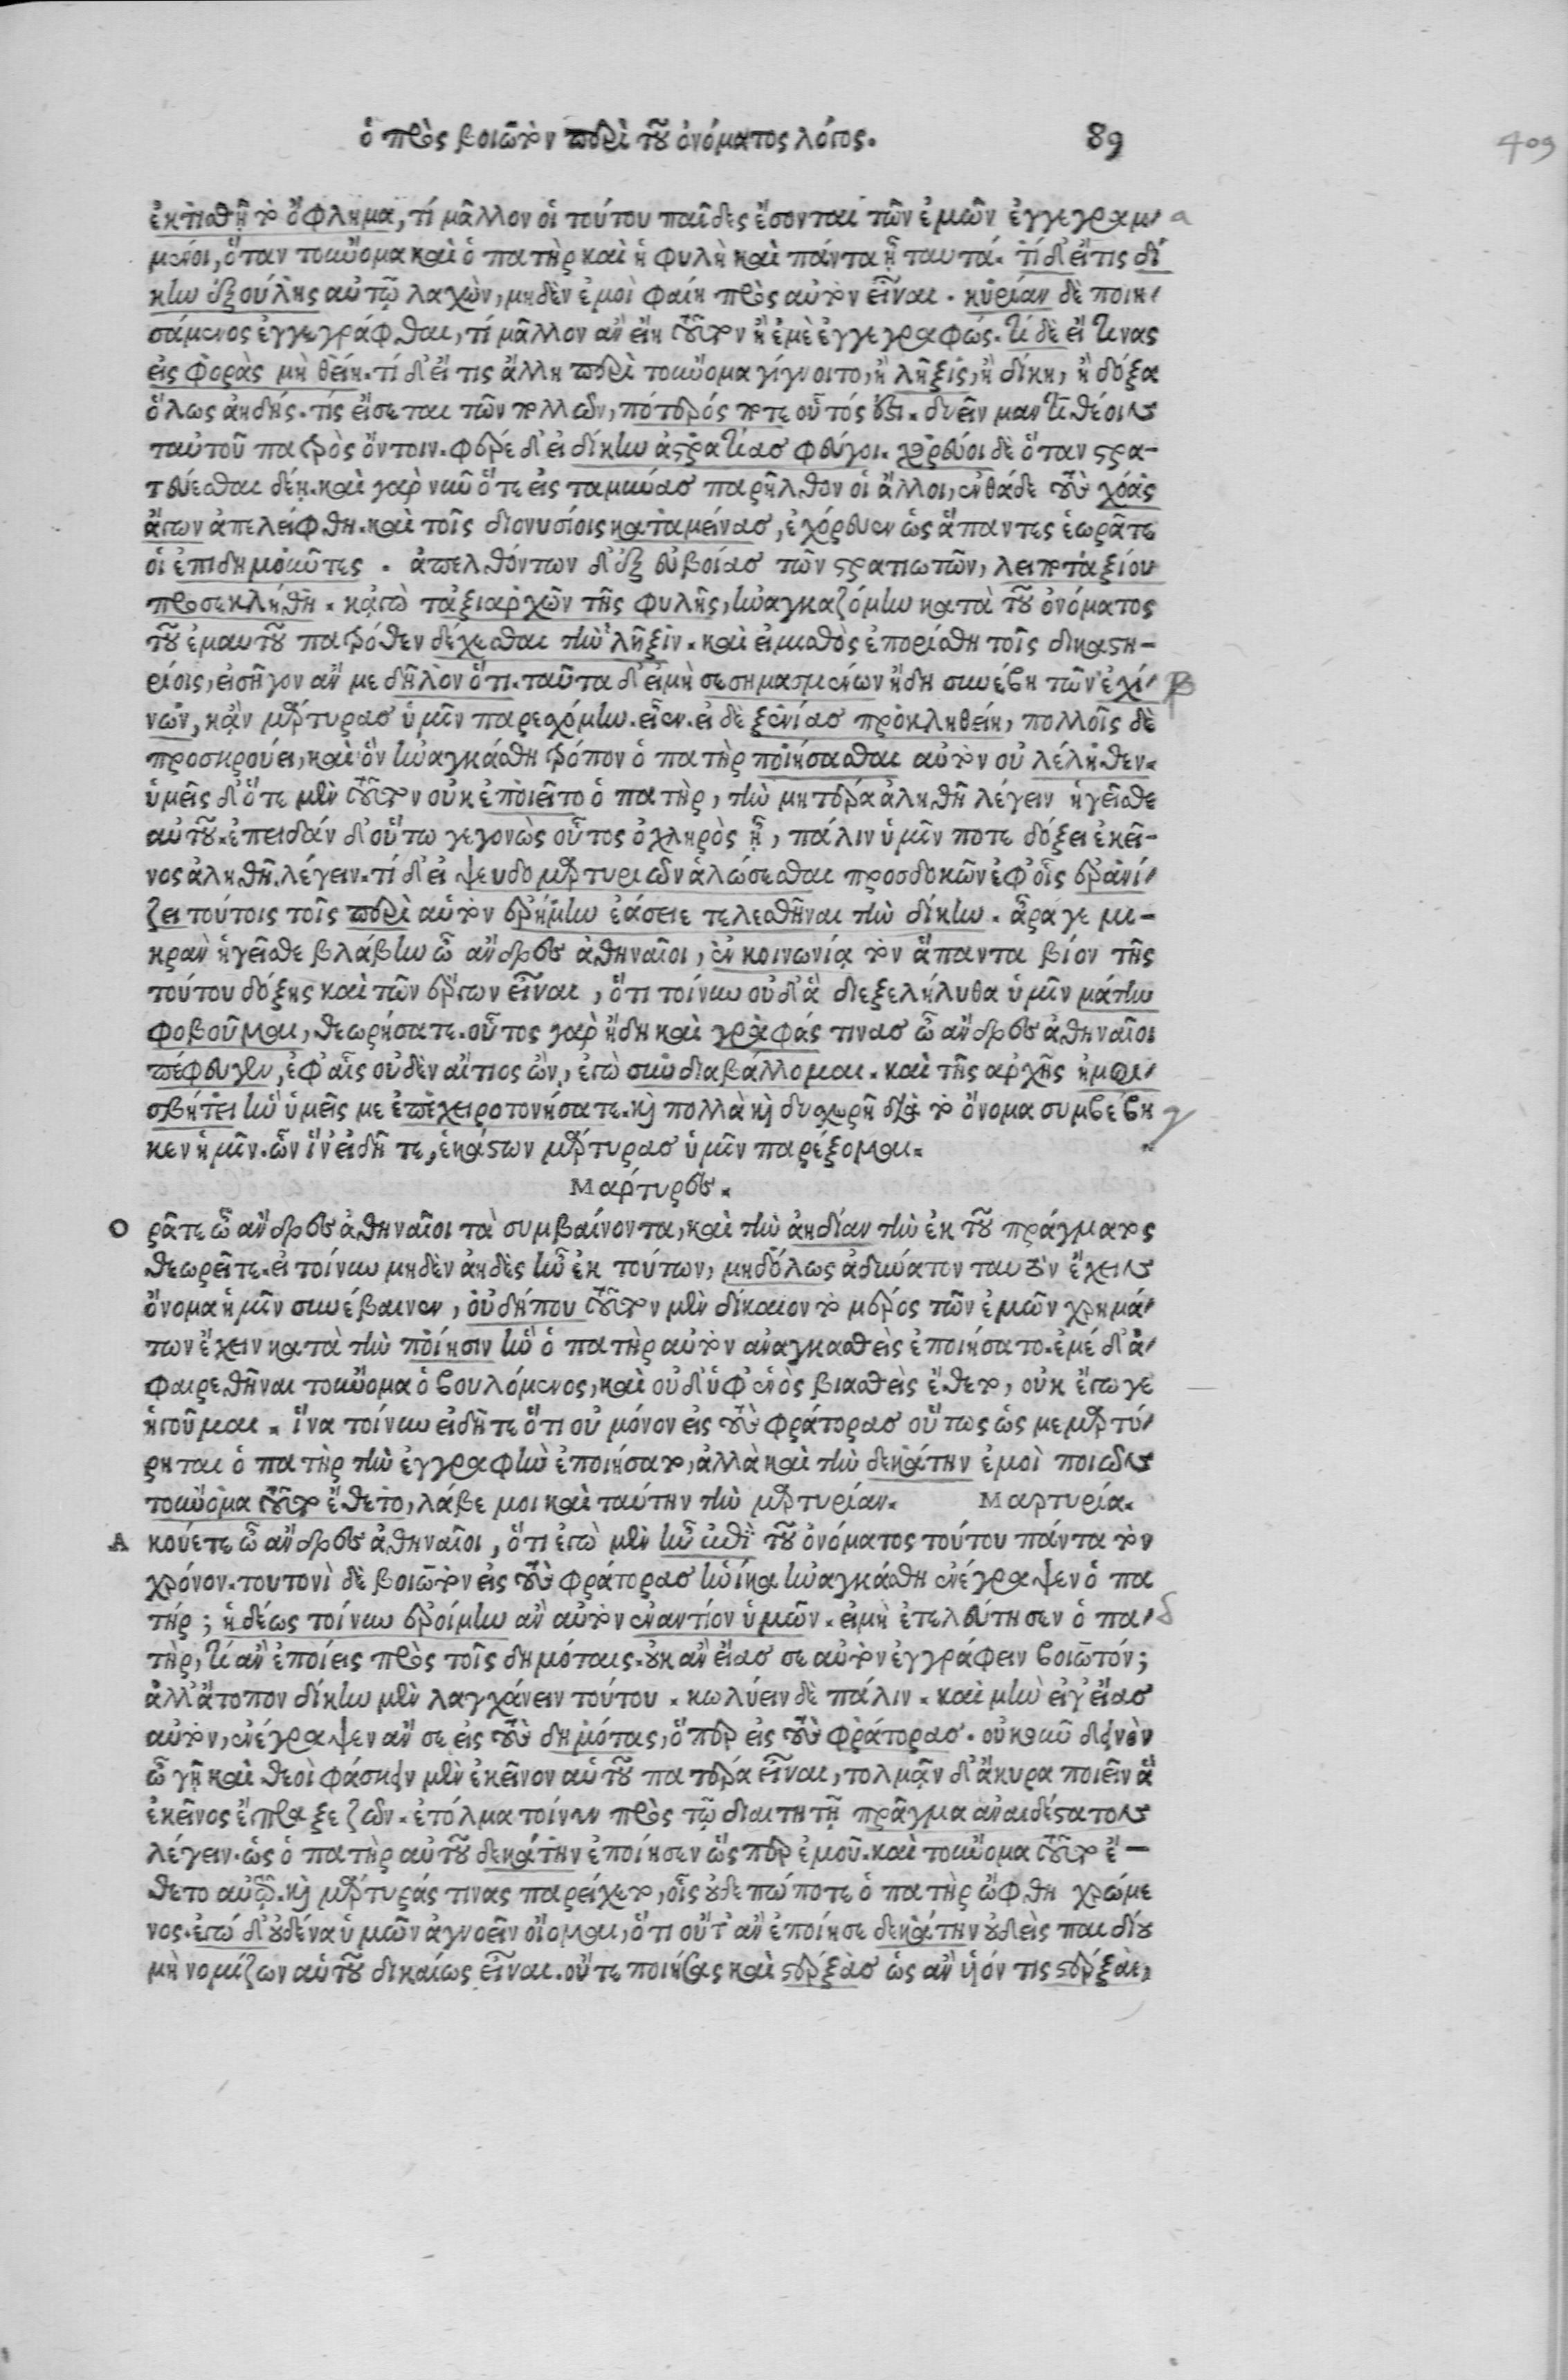 ὁ πρὸς βοιωτὸν περὶ τοῦ ὀνόματος λόγος. 89 409
ἐκτισθῇ τὸ ὄφλημα, τί μᾶλλον οἱ τούτου παῖδες ἔσονται τῶν ἐμῶν ἐγγεγραμ- α
μένοι, ὅταν τοὔνομα καὶ ὁ πατὴρ καὶ ἡ φυλὴ καὶ πάντα ᾖ ταυτά. τί δ' εἴ τις δί
κην ἐξούλης αὐτῷ λαχὼν, μηδὲν ἐμοὶ φαίη πρὸς αὐτὸν εἶναι. κυρίαν δὲ ποιη-
σάμενος ἐγγεγράφθαι, τί μᾶλλον ἂν εἴη τοῦτον ἢ ἐμὲ ἐγγεγραφώς. τί δὲ εἴ τινας
εἰς φορὰς μὴ θείη. τί δ' εἴ τις ἄλλη περὶ τοὔνομα γίγνοιτο, ἢ λῆξις, ἢ δίκη, ἢ δόξα
ὅλως ἀηδής. τίς εἴσεται τῶν πολλῶν, πότερός ποτε οὗτός ἐστι. δυεῖν μαντιθέοιν
ταὐτοῦ πατρὸς ὄντοιν. φέρε δ' εἰ δίκην ἀστρατείας φεύγοι. χορεύοι δὲ ὅταν στρα-
τεύεσθαι δέῃ. καὶ γὰρ νῦν ὅτε εἰς ταμύνας παρῆλθον οἱ ἄλλοι, ἐνθάδε τοὺς χόας
ἄγων ἀπελείφθη. καὶ τοῖς διονυσίοις καταμείνας, ἐχόρευεν ὡς ἅπαντες ἑωρᾶτε
οἱ ἐπιδημοῦντες. ἀπελθόντων δ' ἐξ εὐβοίας τῶν στρατιωτῶν, λειποταξίου
προσεκλήθη. κἀγὼ ταξιαρχῶν τῆς φυλῆς, ἠναγκαζόμην κατὰ τοῦ ὀνόματος
τοῦ ἐμαυτοῦ πατρόθεν δέχεσθαι τὴν λῆξιν. καὶ εἰ μισθὸς ἐπορίσθη τοῖς δικαστη-
ρίοις, εἰσῆγον ἄν με δῆλον ὅτι. ταῦτα δ' εἰ μὴ σεσημασμένων ἤδη συνέβη τῶν ἐχί- β
νων, κἂν μάρτυρας ὑμῖν παρεχόμην. εἶεν. εἰ δὲ ξενίας προκληθείη, πολλοῖς δὲ
προσκρούει, καὶ ὃν ἠναγκάσθη τρόπον ὁ πατὴρ ποιήσασθαι αὐτὸν οὐ λέληθεν.
ὑμεῖς δ' ὅτε μὲν τοῦτον οὐκ ἐποιεῖτο ὁ πατὴρ, τὴν μητέρα ἀληθῆ λέγειν ἡγεῖσθε
αὐτοῦ. ἐπειδὰν δ' οὕτω γεγονὼς οὗτος ὀχληρὸς ᾖ, πάλιν ὑμῖν ποτε δόξει ἐκεῖ-
νος ἀληθῆ λέγειν. τί δ' εἰ ψευδομαρτυριῶν ἁλώσεσθαι προσδοκῶν ἐφ' οἷς ἐρανί-
ζει τούτοις τοῖς περὶ αὐτὸν ἐρήμην ἐάσειε τελεσθῆναι τὴν δίκην. ἆρά γε μι-
κρὰν ἡγεῖσθε βλάβην ὦ ἄνδρες ἀθηναῖοι, ἐν κοινωνίᾳ τὸν ἅπαντα βίον τῆς
τούτου δόξης καὶ τῶν ἔργων εἶναι, ὅτι τοίνυν οὐδ' ἃ διεξελήλυθα ὑμῖν μάτην
φοβοῦμαι, θεωρήσατε. οὗτος γὰρ ἤδη καὶ γραφάς τινας ὦ ἄνδρες ἀθηναῖοι
πέφευγεν, ἐφ' αἷς οὐδὲν αἴτιος ὢν, ἐγὼ συνδιαβάλλομαι. καὶ τῆς ἀρχῆς ἠμφι-
σβήτει ἣν ὑμεῖς με ἐπεχειροτονήσατε. καὶ πολλὰ καὶ δυσχερῆ διὰ τὸ ὄνομα συμβέβη γ
κεν ἡμῖν. ὧν ἵν' εἰδῆτε, ἑκάστων μάρτυρας ὑμῖν παρέξομαι.
Μάρτυρες.
Ορᾶτε ὦ ἄνδρες ἀθηναῖοι τὰ συμβαίνοντα, καὶ τὴν ἀηδίαν τὴν ἐκ τοῦ πράγματος
θεωρεῖτε. εἰ τοίνυν μηδὲν ἀηδὲς ἦν ἐκ τούτων, μηδ' ὅλως ἀδύνατον ταυτὸν ἔχειν
ὄνομα ἡμῖν συνέβαινεν, οὐ δήπου τοῦτον μὲν δίκαιον τὸ μέρος τῶν ἐμῶν χρημά-
των ἔχειν κατὰ τὴν ποίησιν ἣν ὁ πατὴρ αὐτὸν ἀναγκασθεὶς ἐποιήσατο. ἐμέ δ' ἀ-
φαιρεθῆναι τοὔνομα ὃ βουλόμενος, καὶ οὐδ' ὑφ' ἑνὸς βιασθεὶς ἔθετο, οὐκ ἔγωγε
ἡγοῦμαι. ἵνα τοίνυν εἰδῆτε ὅτι οὐ μόνον εἰς τοὺς φράτορας οὕτως ὡς μεμαρτύ-
ρηται ὁ πατὴρ τὴν ἐγγραφὴν ἐποιήσατο, ἀλλὰ καὶ τὴν δεκάτην ἐμοὶ ποιῶν
τοὔνομα τοῦτο ἔθετο, λάβε μοι καὶ ταύτην τὴν μαρτυρίαν. Μαρτυρία.
Ακούετε ὦ ἄνδρες ἀθηναῖοι, ὅτι ἐγὼ μὲν ἦν ἐπὶ τοῦ ὀνόματος τούτου πάντα τὸν
χρόνον. τουτονὶ δὲ βοιωτὸν εἰς τοὺς φράτορας ἡνίκα ἠναγκάσθη ἐνέγραψεν ὁ πα
τήρ; ἡδέως τοίνυν ἐροίμην ἂν αὐτὸν ἐναντίον ὑμῶν. εἰ μὴ ἐτελεύτησεν ὁ πα- δ
τὴρ, τί ἂν ἐποίεις πρὸς τοῖς δημόταις. οὐκ ἂν εἴας σεαυτὸν ἐγγράφειν βοιωτόν;
ἀλλ' ἄτοπον δίκην μὲν λαγχάνειν τούτου. κωλύειν δὲ πάλιν. καὶ μὴν εἴ γ' εἴας
αὐτὸν, ἐνέγραψεν ἄν σε εἰς τοὺς δημότας, ὅπερ εἰς τοὺς φράτορας. οὐκοῦν δεινὸν
ὦ γῆ καὶ θεοὶ φάσκειν μὲν ἐκεῖνον αὑτοῦ πατέρα εἶναι, τολμᾷν δ' ἄκυρα ποιεῖν ἃ
ἐκεῖνος ἔπραξε ζῶν. ἐτόλμα τοίνυν πρὸς τῷ διαιτητῇ πρᾶγμα ἀναιδέστατον
λέγειν. ὡς ὁ πατὴρ αὐτοῦ δεκάτην ἐποίησεν ὥσπερ ἐμοῦ. καὶ τοὔνομα τοῦτο ἔ-
θετο αὐτῷ. καὶ μάρτυράς τινας παρείχετο, οἷς οὐδεπώποτε ὁ πατὴρ ὤφθη χρώμε
νος. ἐγώ δ' οὐδένα ὑμῶν ἀγνοεῖν οἴομαι, ὅτι οὔτ' ἂν ἐποίησε δεκάτην οὐδεὶς παιδίου
μὴ νομίζων αὑτοῦ δικαίως εἶναι. οὔτε ποιήσας καὶ στέρξας ὡς ἂν ὑιόν τις στέρξαι,